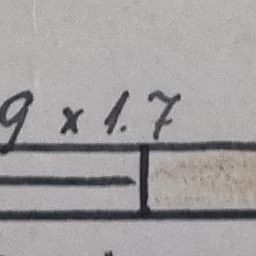 9 x 1.7